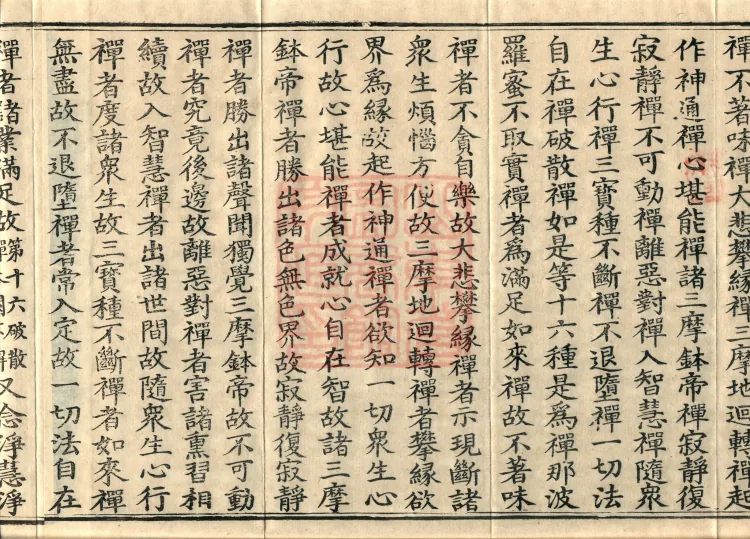 禪不著味禪大悲攀緣禪三摩地迴轉禪起
作神通禪心堪能禪諸三摩鉢帝禪寂靜復
寂靜禪不可動禪離惡對禪入智慧禪隨衆
生心行禪三寶種不斷禪不退墮禪一切法
自在禪破散禪如是等十六種是爲禪那波
羅蜜不取實禪者爲滿足如來禪故不著味
禪者不貪自樂故大悲攀緣禪者示現斷諸
衆生煩惱方便故三摩地迴轉禪者攀緣欲
界爲緣故起作神通禪者欲知一切衆生心
行故心堪能禪者成就心自在智故諸三摩
鉢帝禪者勝出諸色無色界故寂靜復寂靜
禪者勝出諸聲聞獨覺三摩鉢帝故不可動
禪者究竟後邊故離惡對禪者害諸熏習相
續故入智慧禪者出諸世間故隨衆生心行
禪者度諸衆生故三寶種不斷禪者如來禪
無盡故不退墮禪者常入定故一切法自在
禪者諸業滿足故第十六破散又念淨慧淨